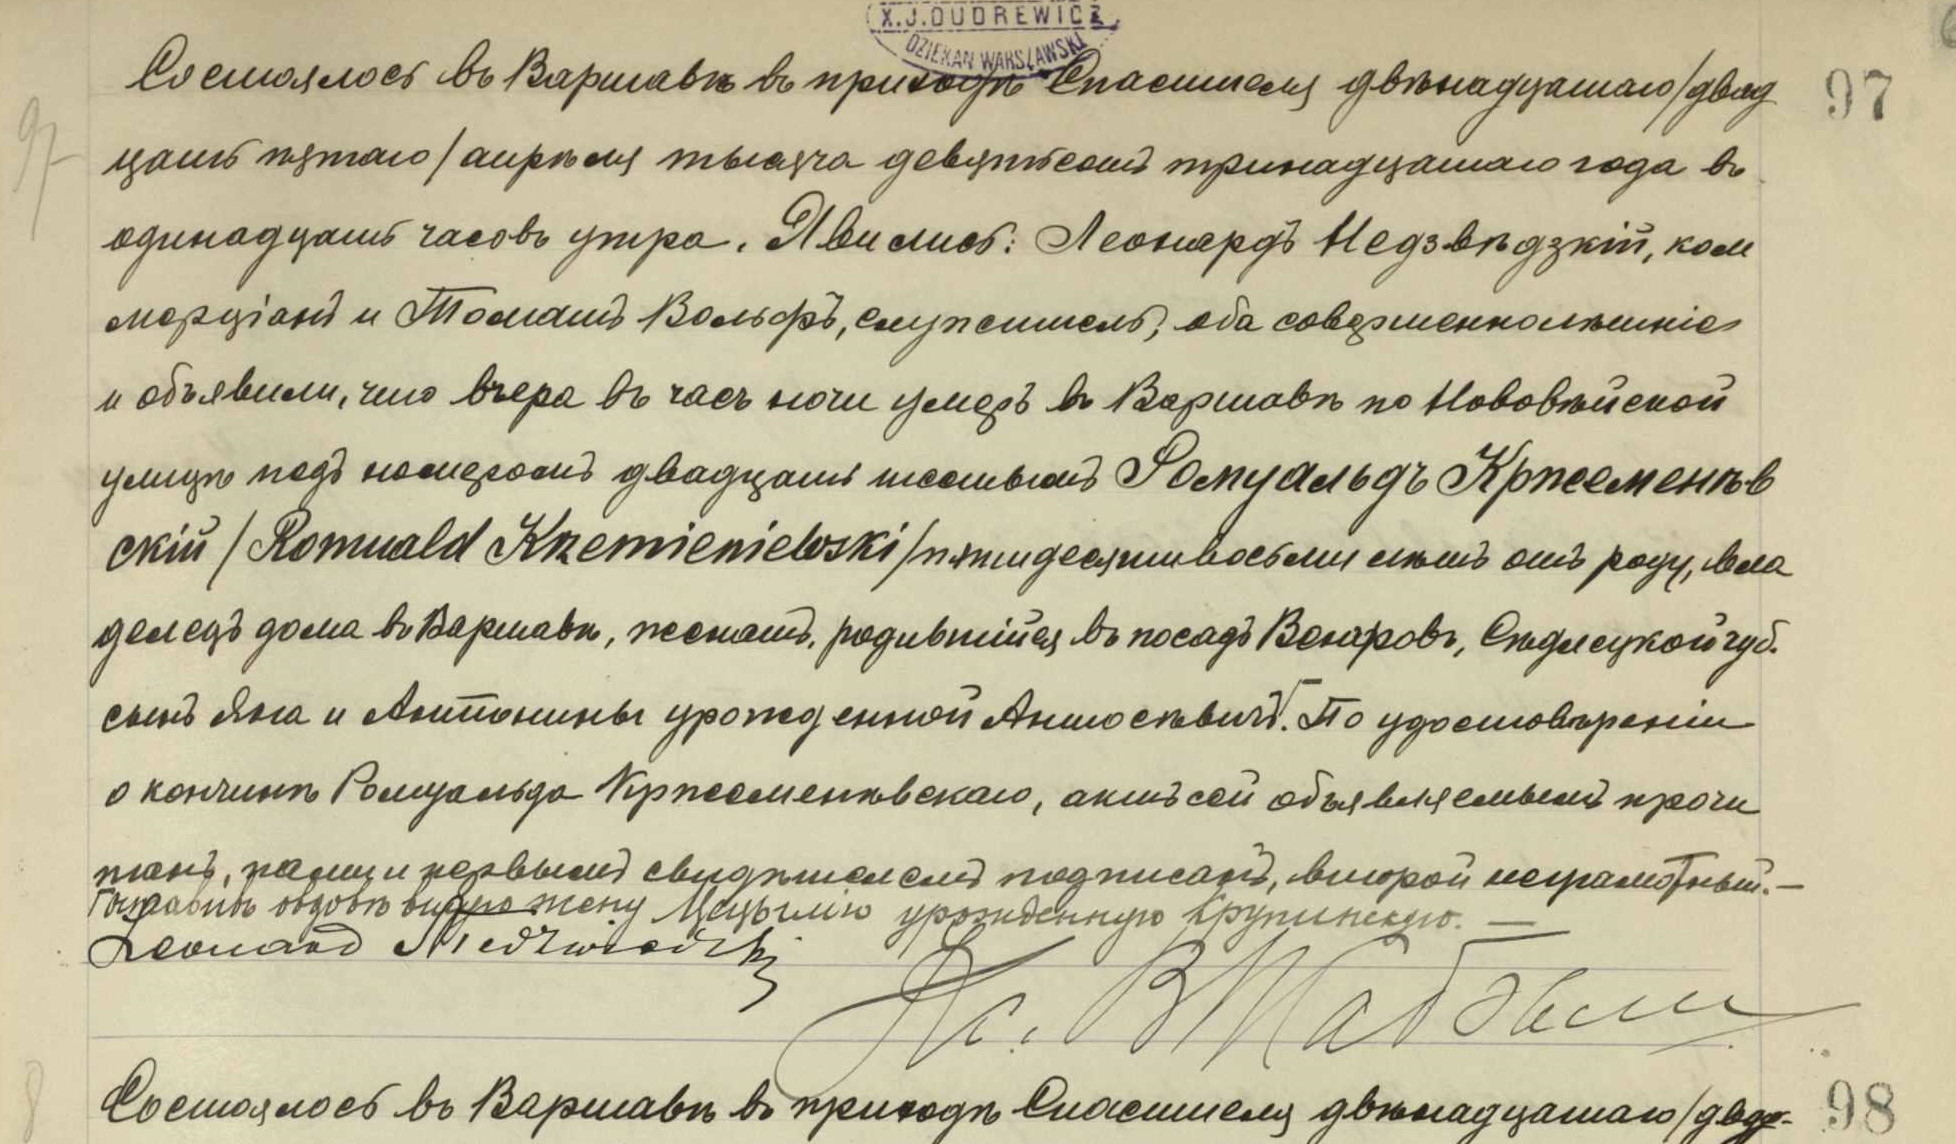 X.J. DUDREWICZ
DZIEKAN WARSZAWSKI
Состоялось въ Варшавѣ въ приходѣ Спасителя двѣнадцатаго /двад
97
97
цать пятаго/ апрѣля тысяча девятьсотъ тринадцатаго года въ
одинадцать часовъ утра. Явились: Леонардъ Недзвѣдзкій, ком
мерціантъ и Томашъ Вольфъ, служитель, оба совершеннолѣтніе
и объявили, что вчера въ часъ ночи умеръ въ Варшавѣ по Нововѣйской
улицѣ подъ номеромъ двадцать шестымъ Ромуальдъ Кржеменѣв
скій /Romuald Krzemieniewski/ пятидесяти восьми лѣтъ отъ роду, вла
делецъ дома въ Варшавѣ, женатъ, родившійся въ посадѣ Венгровъ, Сѣдлецкой губ.
сынъ Яна и Антонины урожденной Антосѣвичъ. По удостовѣреніи
о кончинѣ Ромуальда Кржеменѣвскаго, актъ сей объявляемымъ прочи
танъ, нами и первымъ свидѣтелемъ подписанъ, второй неграмотный.—
оставивъ овдовѣвшую жену Цецылію урожденную Крупинскую. —
Leonard Niedzwiedzki
Кс.
8
Состоялось въ Варшавѣ въ приходѣ Спасителя двѣнадцатаго /двад-
98